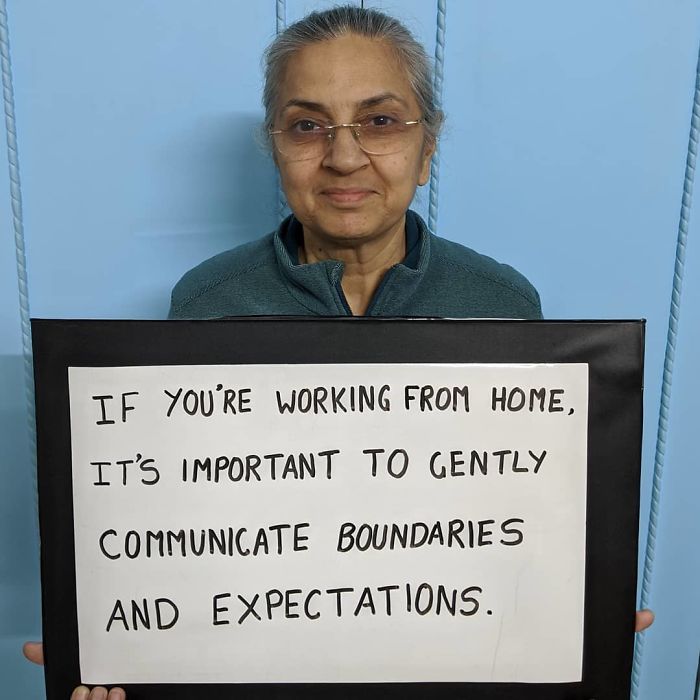 IF YOU'RE WORKING FROM HOME,
IT'S IMPORTANT TO GENTLY
COMMUNICATE BOUNDARIES
AND EXPECTATIONS.